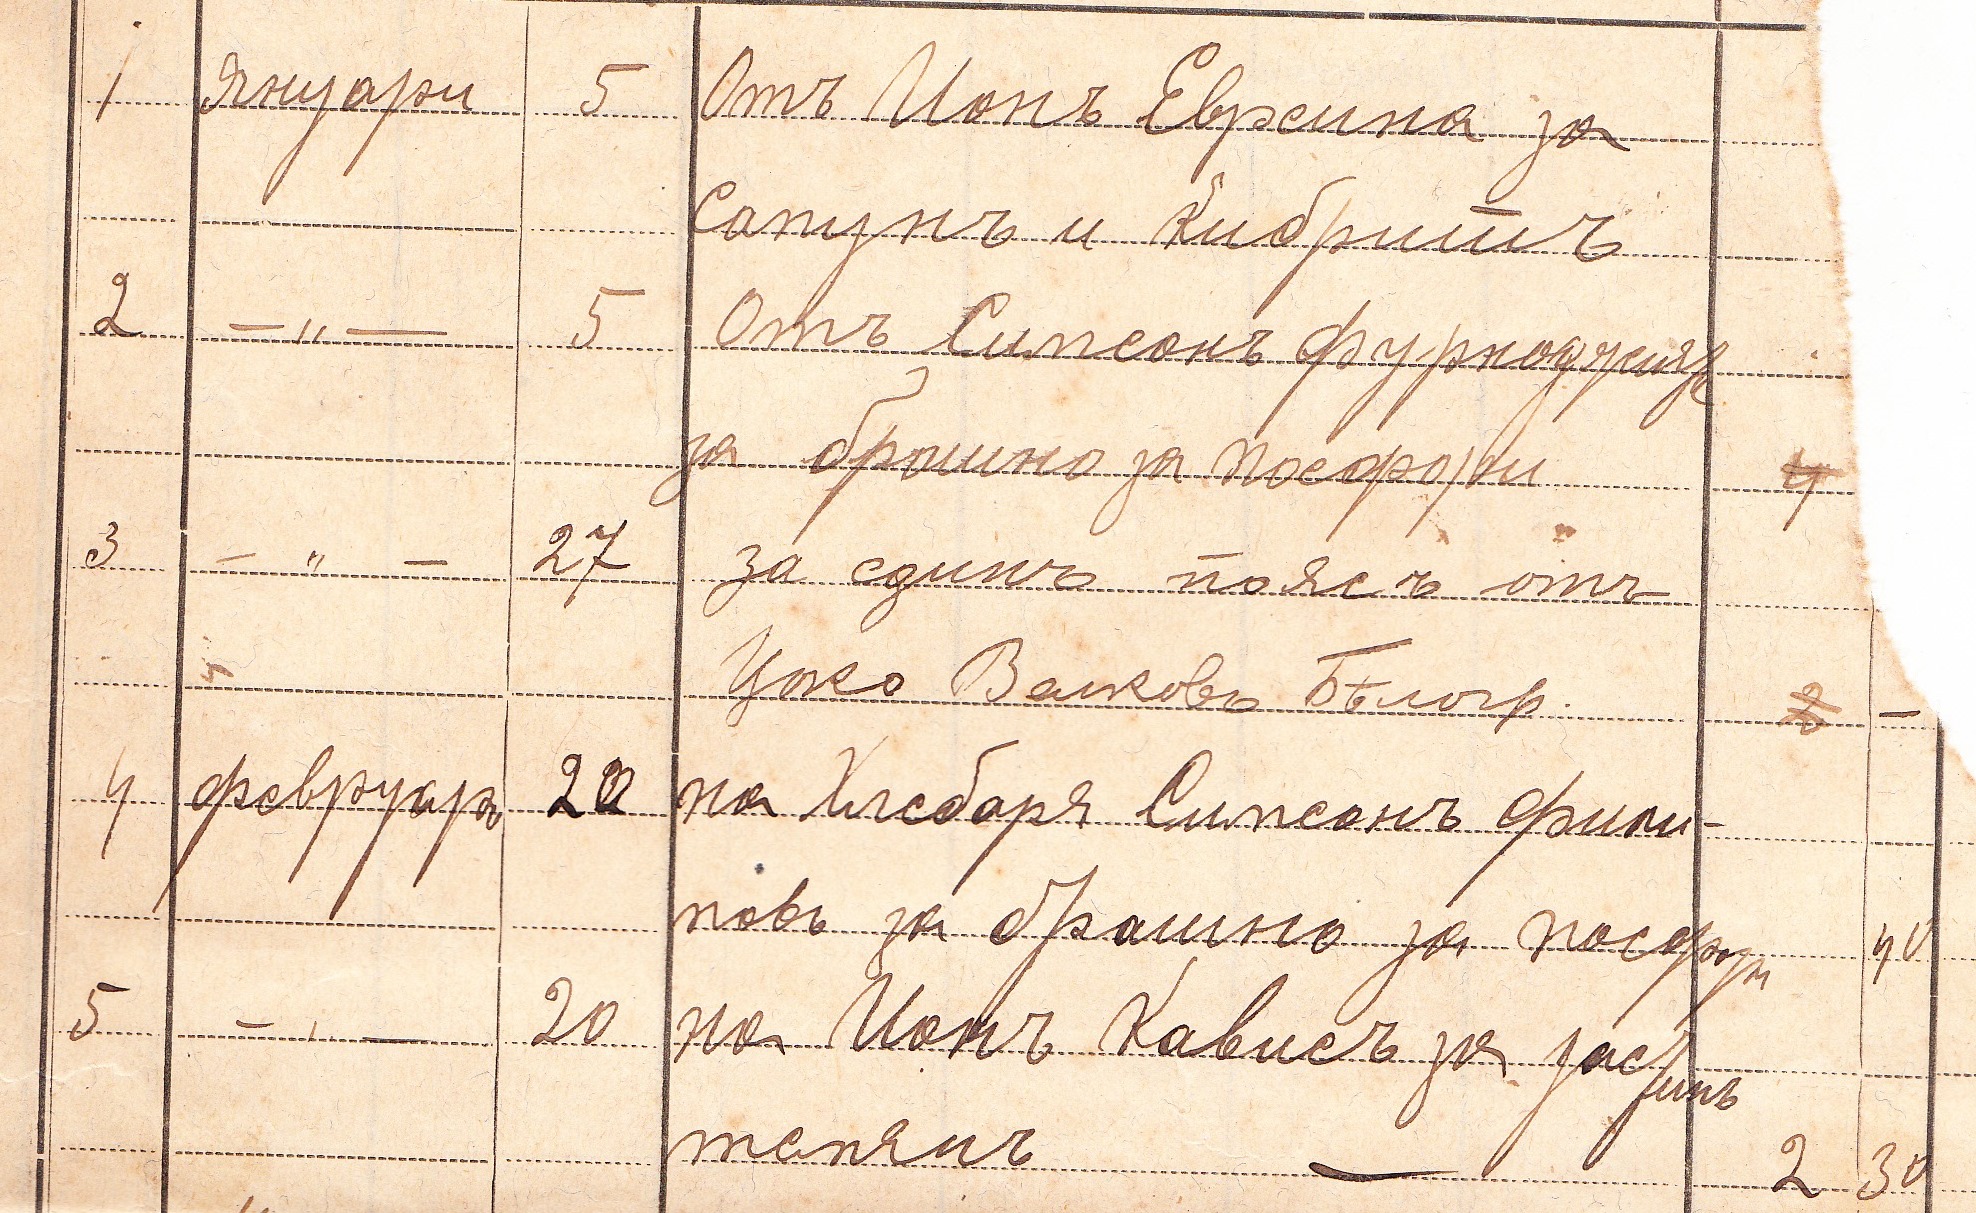 1 Януари 5 Отъ Ионъ Евресина за
Сапунъ и Кибритъ
2 — „ — 5 Отъ Симеонъ фурнаджия
за брашно за посфори 4
3 — „ — 27 за единъ поясъ отъ
Цоко Валковъ Бѣлогр. 2 —
4 февруарь 20 на Хлебаря Симеонъ фили-
повъ за брашно за посфори 40
5 — „ — 20 на Ионъ за
2 30